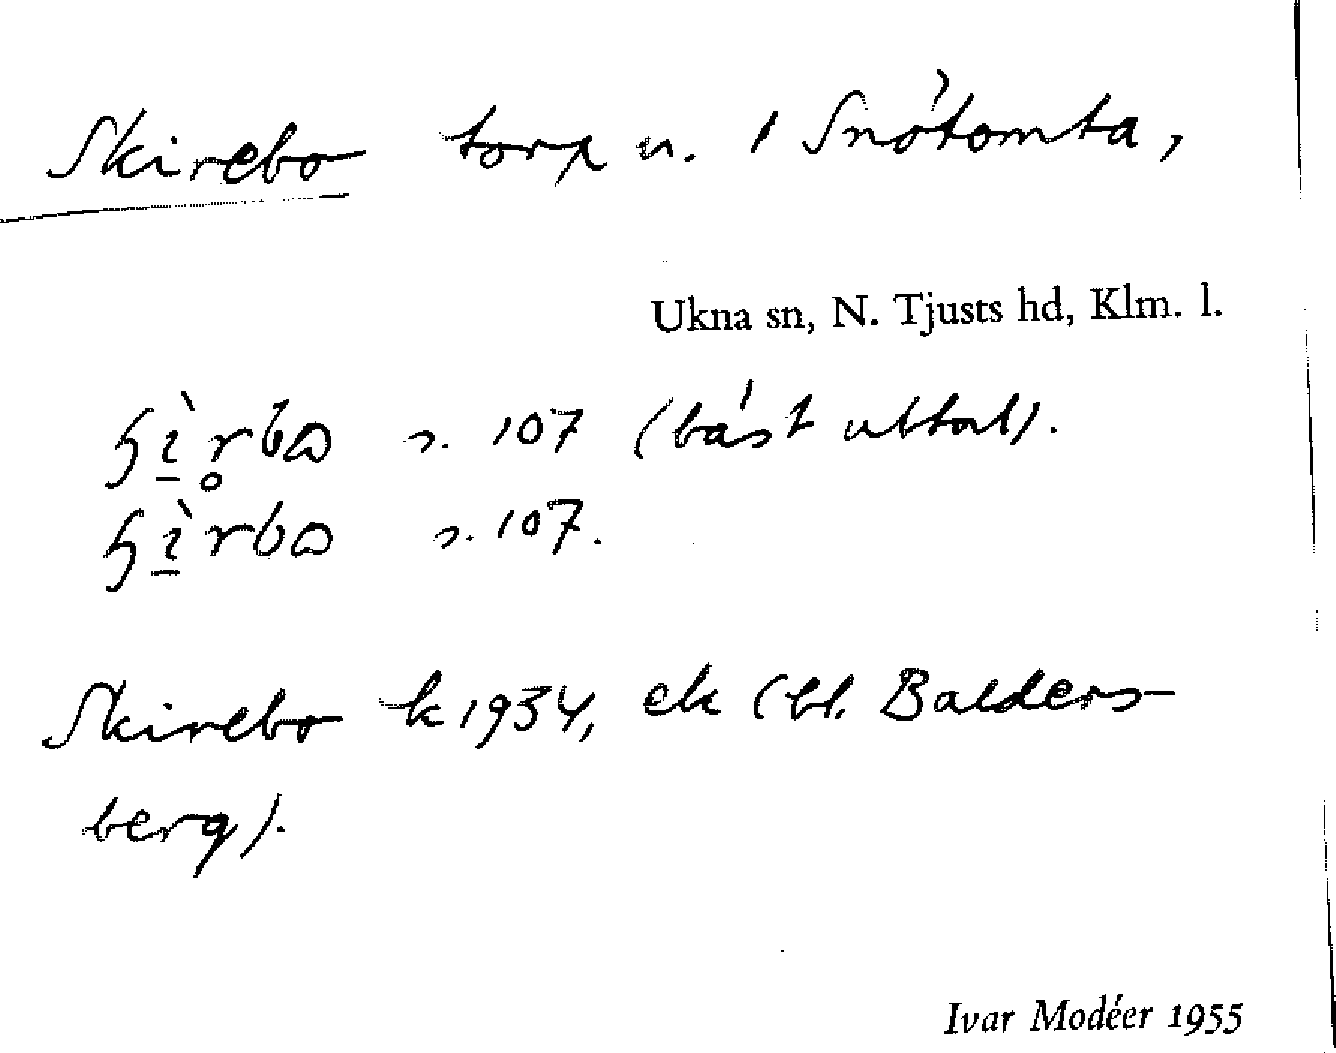 Skirebo torp u. / Snötomta,
Ukna sn, N. Tjusts hd, Klm. l.
s. 107 (bäst uttal).
s. 107.
Skirebo k 1934, ek (bl. Balders-
berg).
Ivar Modéer 1955